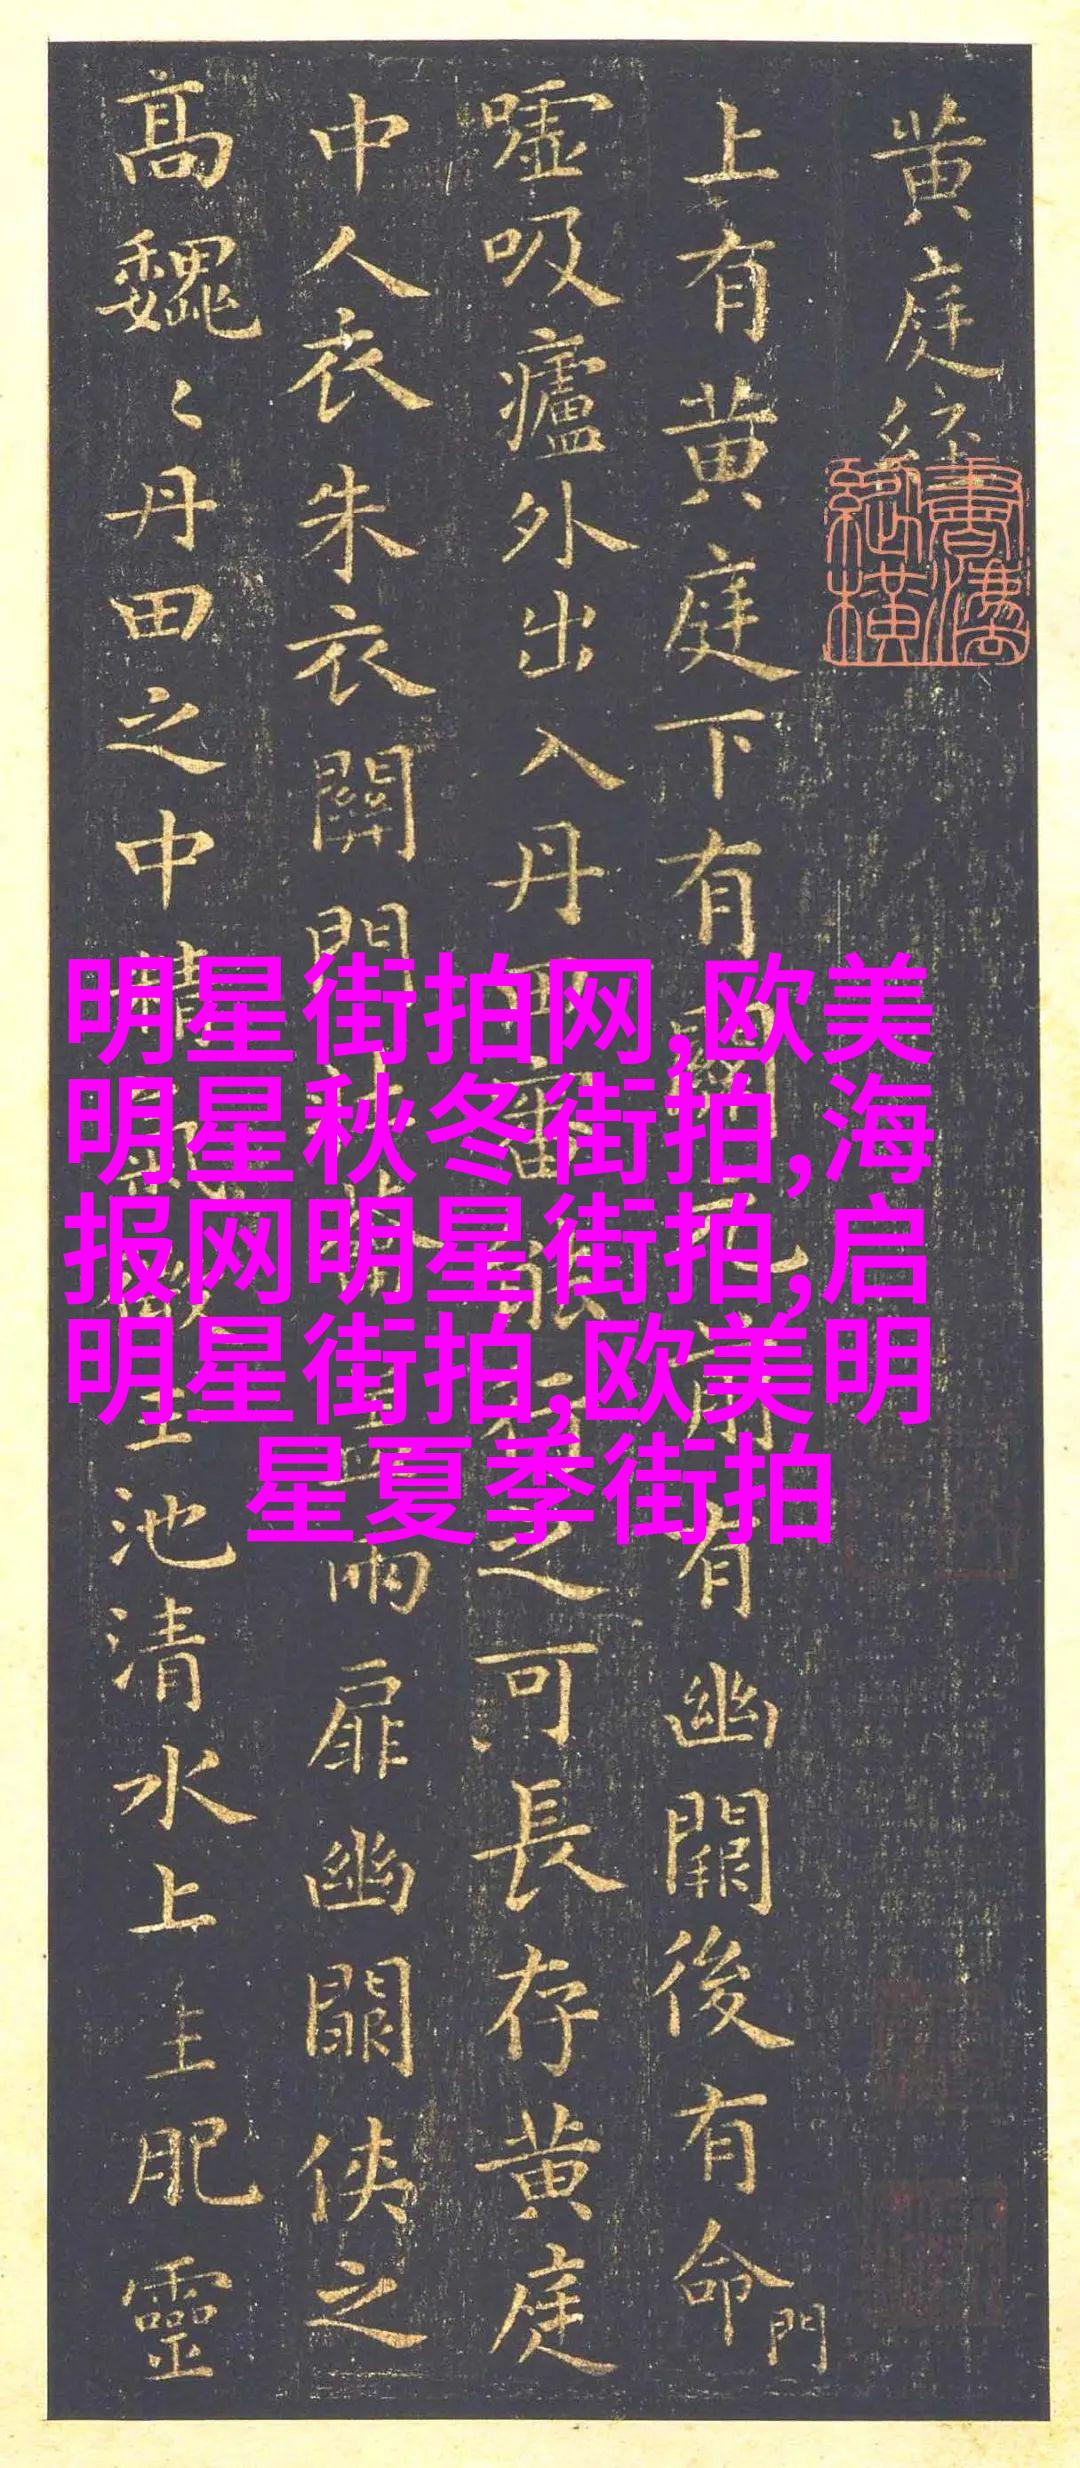 黄庭経
上有黄庭下有關元前有幽闕後有命門
嘘吸廬外出入丹田審能行之可長存黄庭
中人衣朱衣關門壯蘥蓋兩扉幽闕俠之
高魏〻丹田之中精氣微玉池清水上生肥靈
書潇縱横
明星街拍网,欧美
明星秋冬街拍,海
报网明星街拍,启
明星街拍,欧美明
星夏季街拍